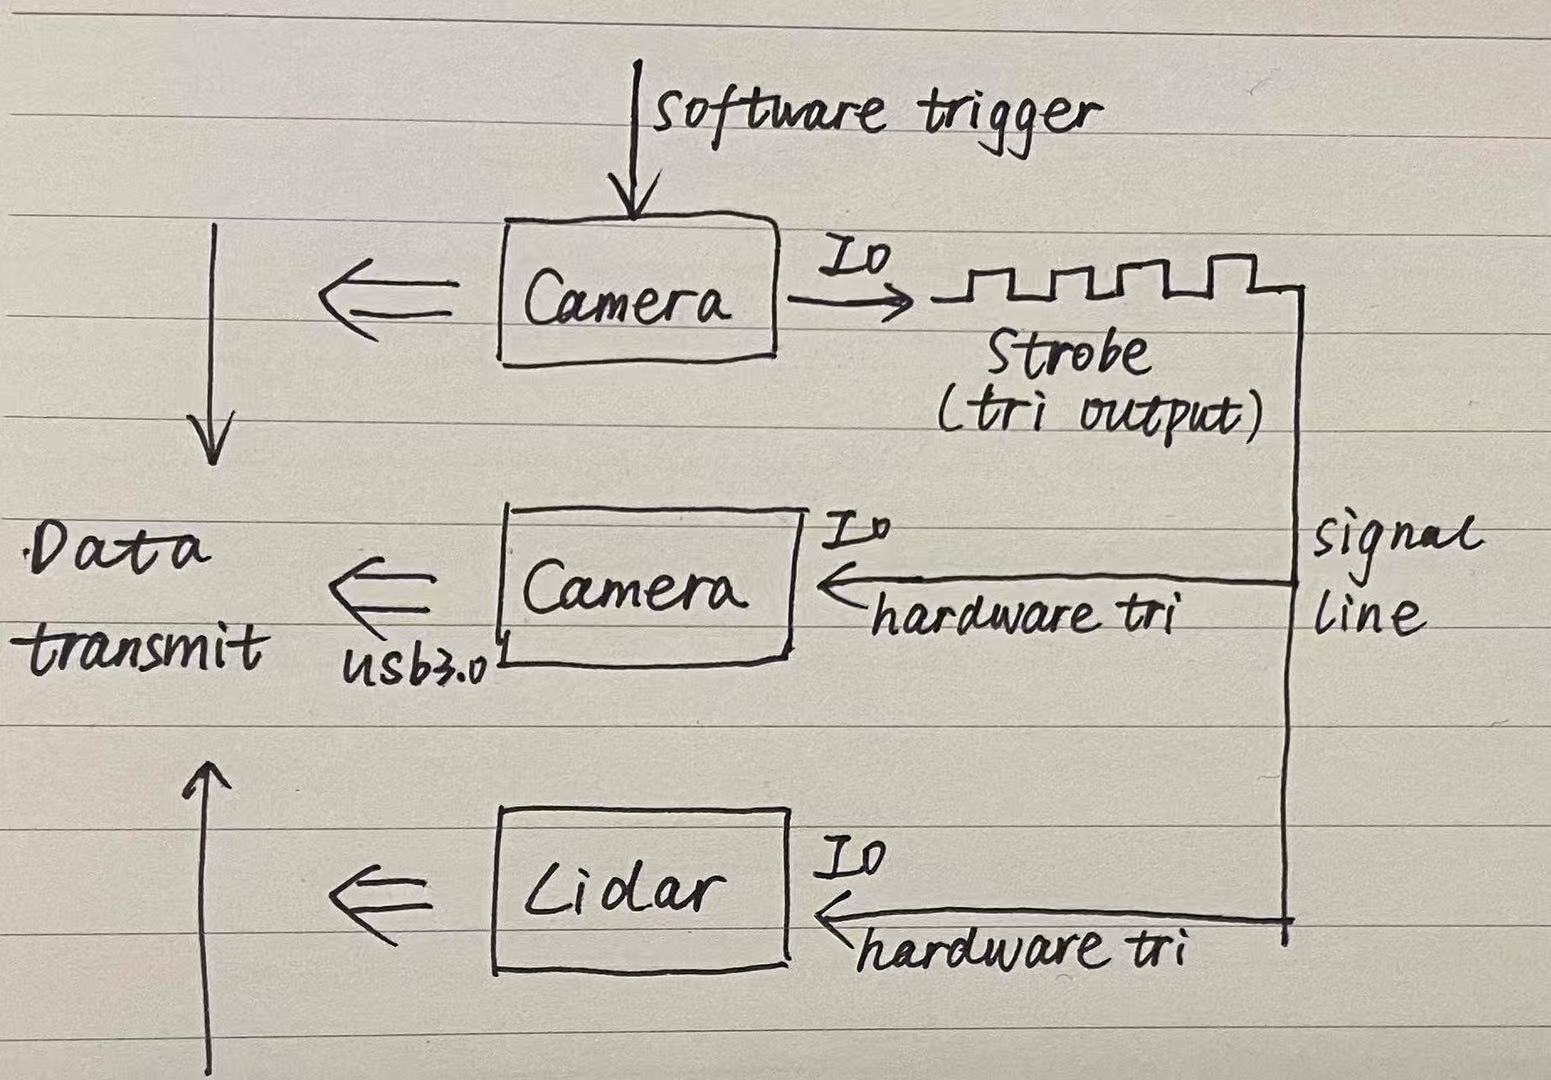 software trigger
Camera
IO
Strobe
(tri output)
Data
transmit
usb3.0
Camera
IO
hardware tri
signal
line
Lidar
IO
hardware tri